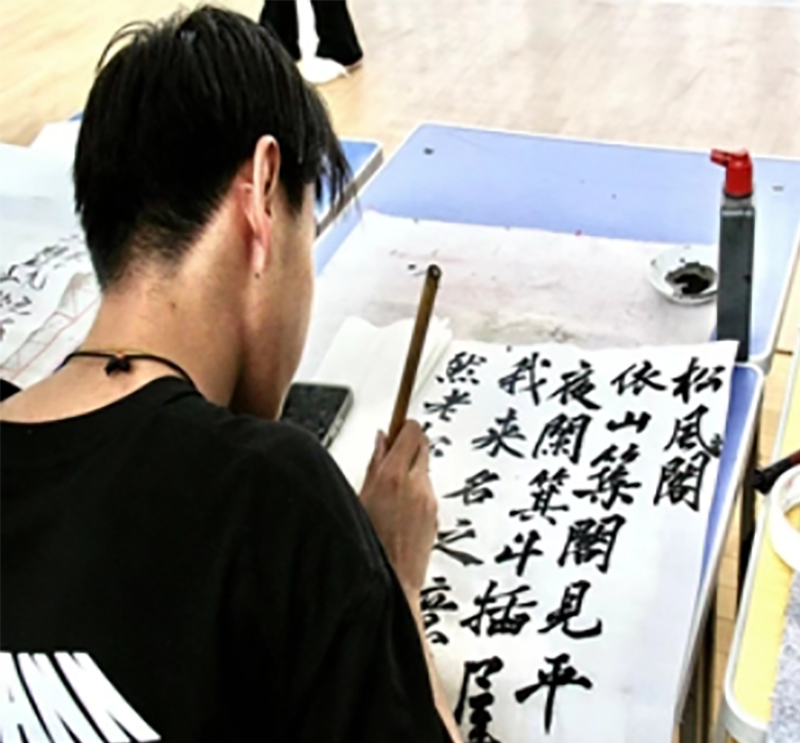 松風閣
依山築閣見平
夜闌箕斗插屋
我来名之意
然老松